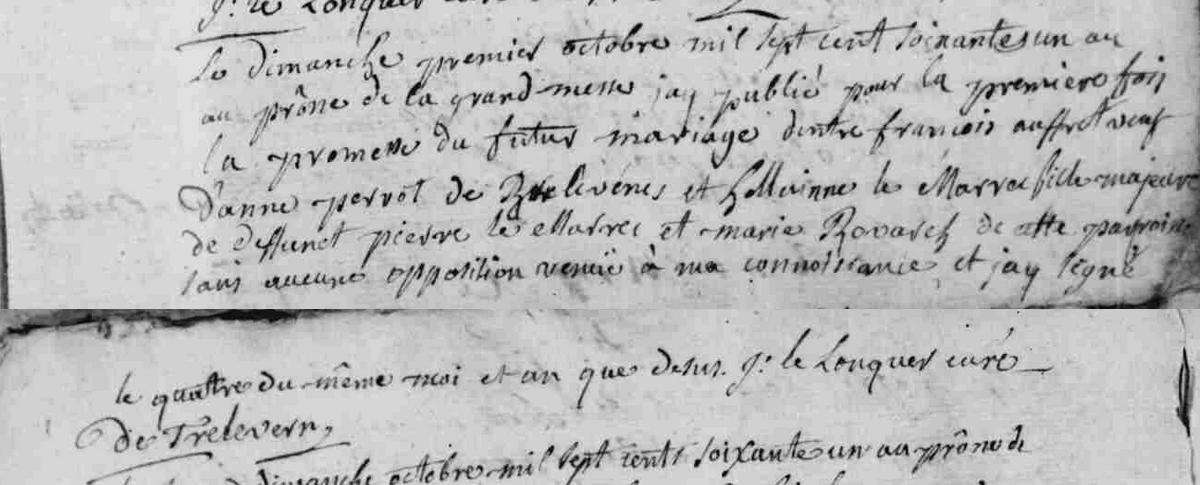 j: le Lonquer
Le dimanche premier octobre mil sept cent soixante un au
au prosne de la grand messe jay publié pour la premiere fois
la promesse du futur mariage dentre francois auffret veuf
D'anne perrot de et le Marrec fille majeur
de deffunct pierre le Marrec et marie Rouarch de cette paroisse
sans aucune opposition venuë à ma connoissance et jay signé
le quattre du même moi et an que desus. j: le Lonquer curé
de Trelevern,
dimanche octobre mil sept cents soixante un au prône de